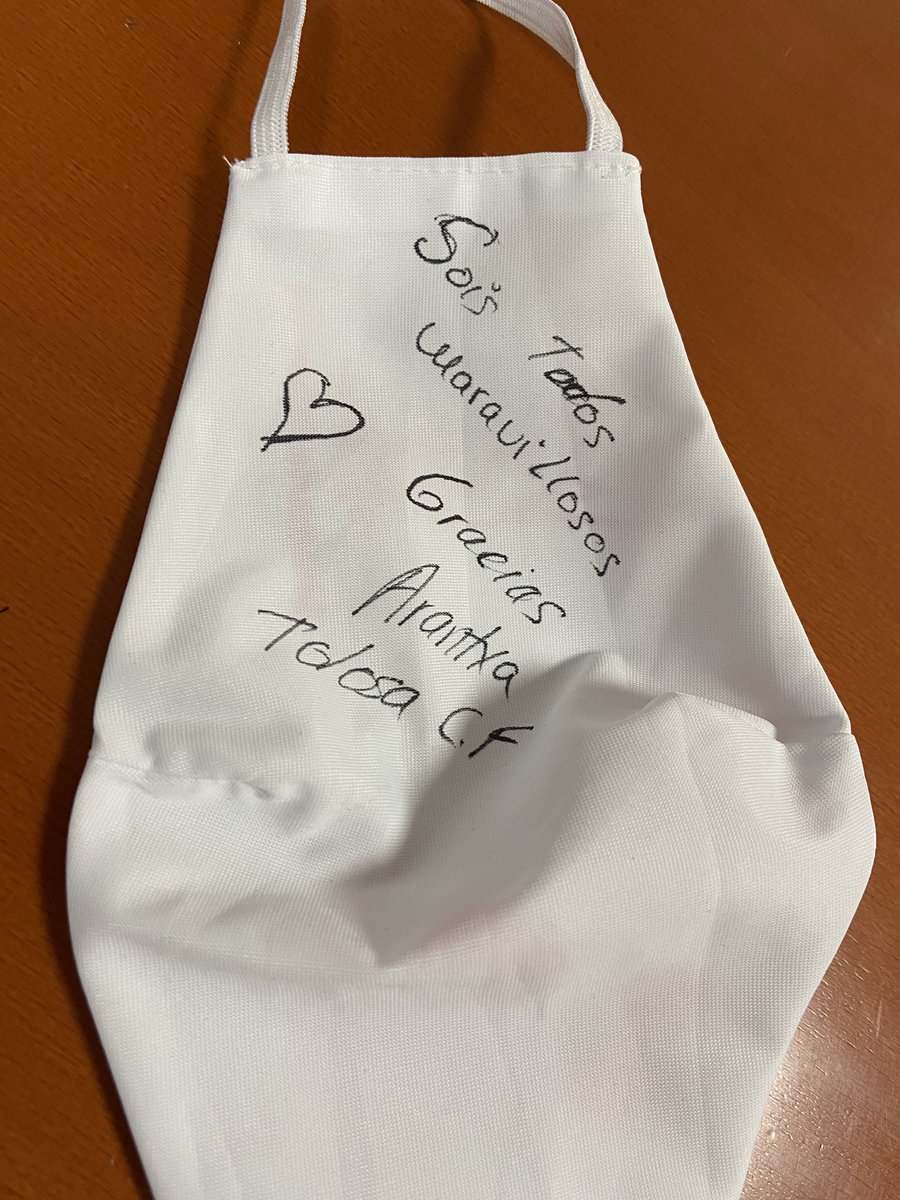 Sois Todos
maravillosos
Gracias
Arantxa
Tolosa C.F